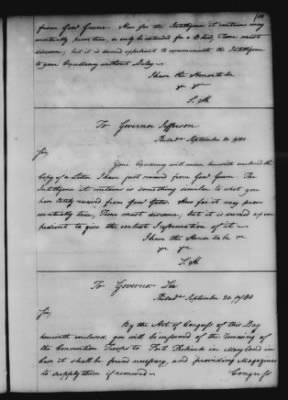 from Genl Greene. How far the Intelligence it contains may
eventually prove true, or only be intended for a Blind, Time must
discover, but it is deemed expedient to communicate the Intelligence
to your Excellency without Delay
I have the Honor to be
&c &c
S. H.
To Governor Jefferson
Philada September 20. 1780
Sir,
Your Excellency will receive herewith enclosed the
Copy of a Letter I have just received from Genl Greene. The
Intelligence it contains is something similar to what you
have lately received from Genl Gates. How far it may prove
eventually true, Time must discover, but it is deemed expedient
to give the earliest Information of it
I have the Honor to be &c
&c &c
S. H.
To Governor Lee
Philada September 20. 1780
Sir,
By the Act of Congress of this Day
herewith enclosed you will be informed of the Removing of
the Convention Troops to Fort Frederick in Maryland in
Case it shall be found necessary, and providing Magazines
to supply them if removed
Congress